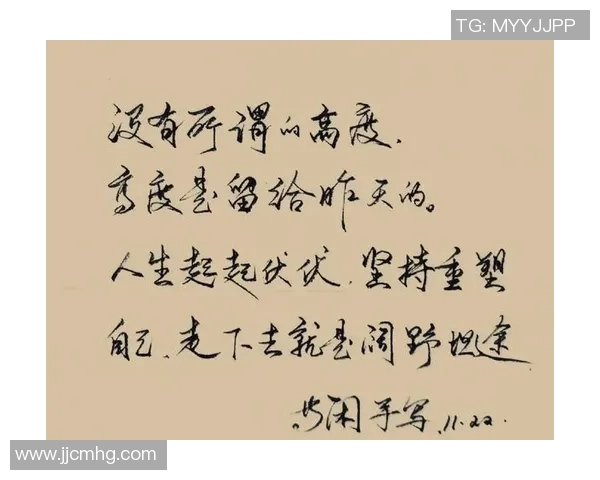 TG: MYYJJPP
没有所谓的高度，
高度是留给昨天的。
人生起起伏伏，坚持重塑
自己，走下去就是阔野坦途
闲手写 11.22.
www.jjcmhg.com